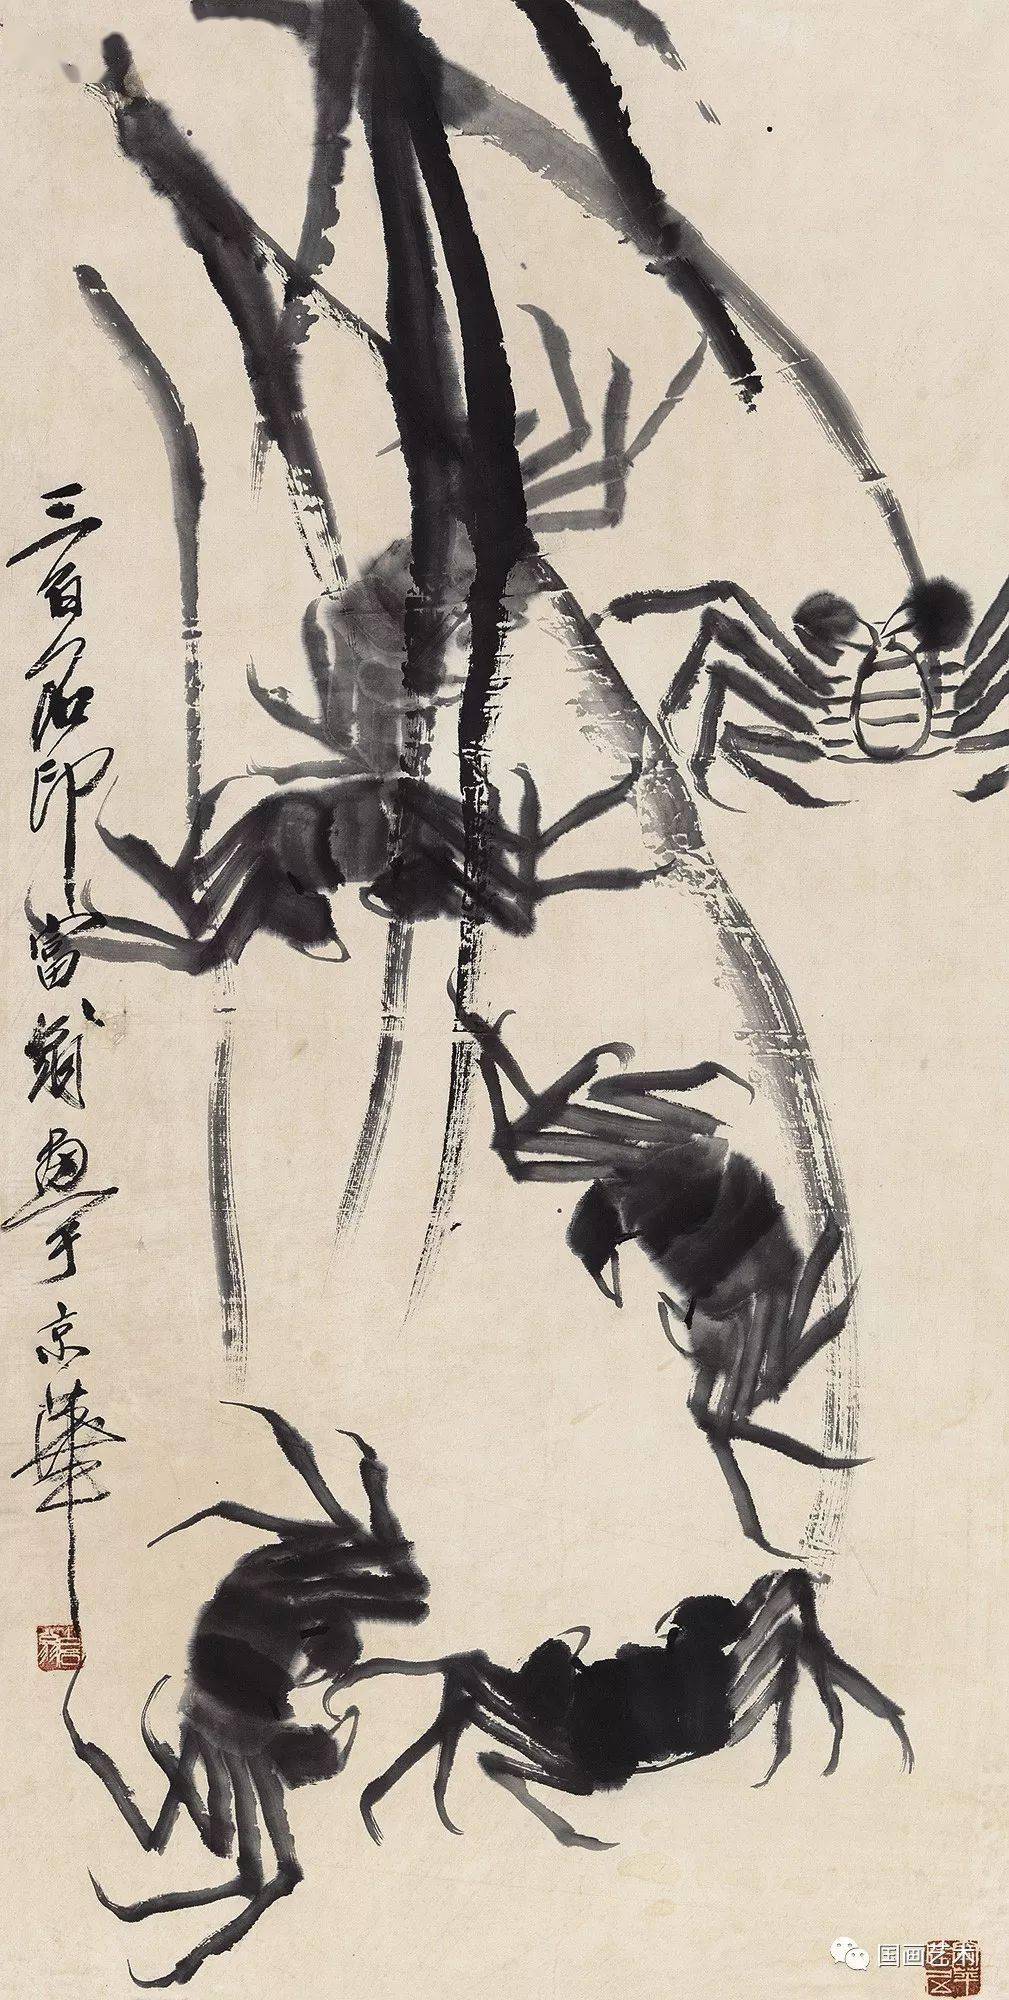 三百石印富翁画于京华
国画艺术